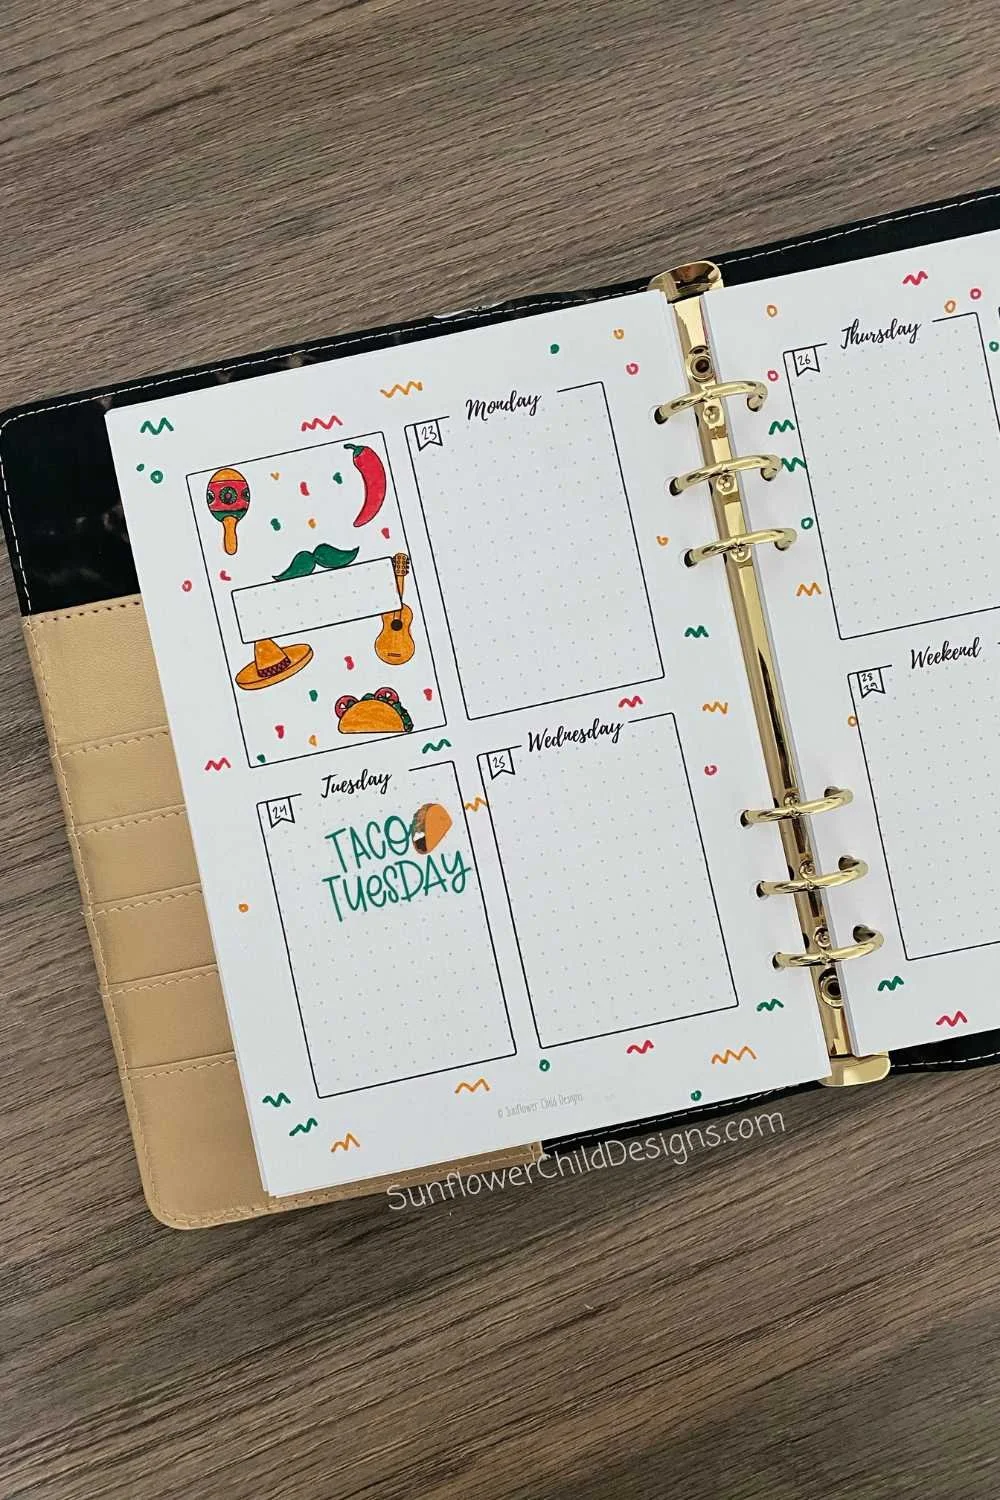 Monday
23
Tuesday
24
TACO
TUESDAY
Wednesday
25
© Sunflower Child Designs
Thursday
26
Weekend
28
29
SunflowerChildDesigns.com